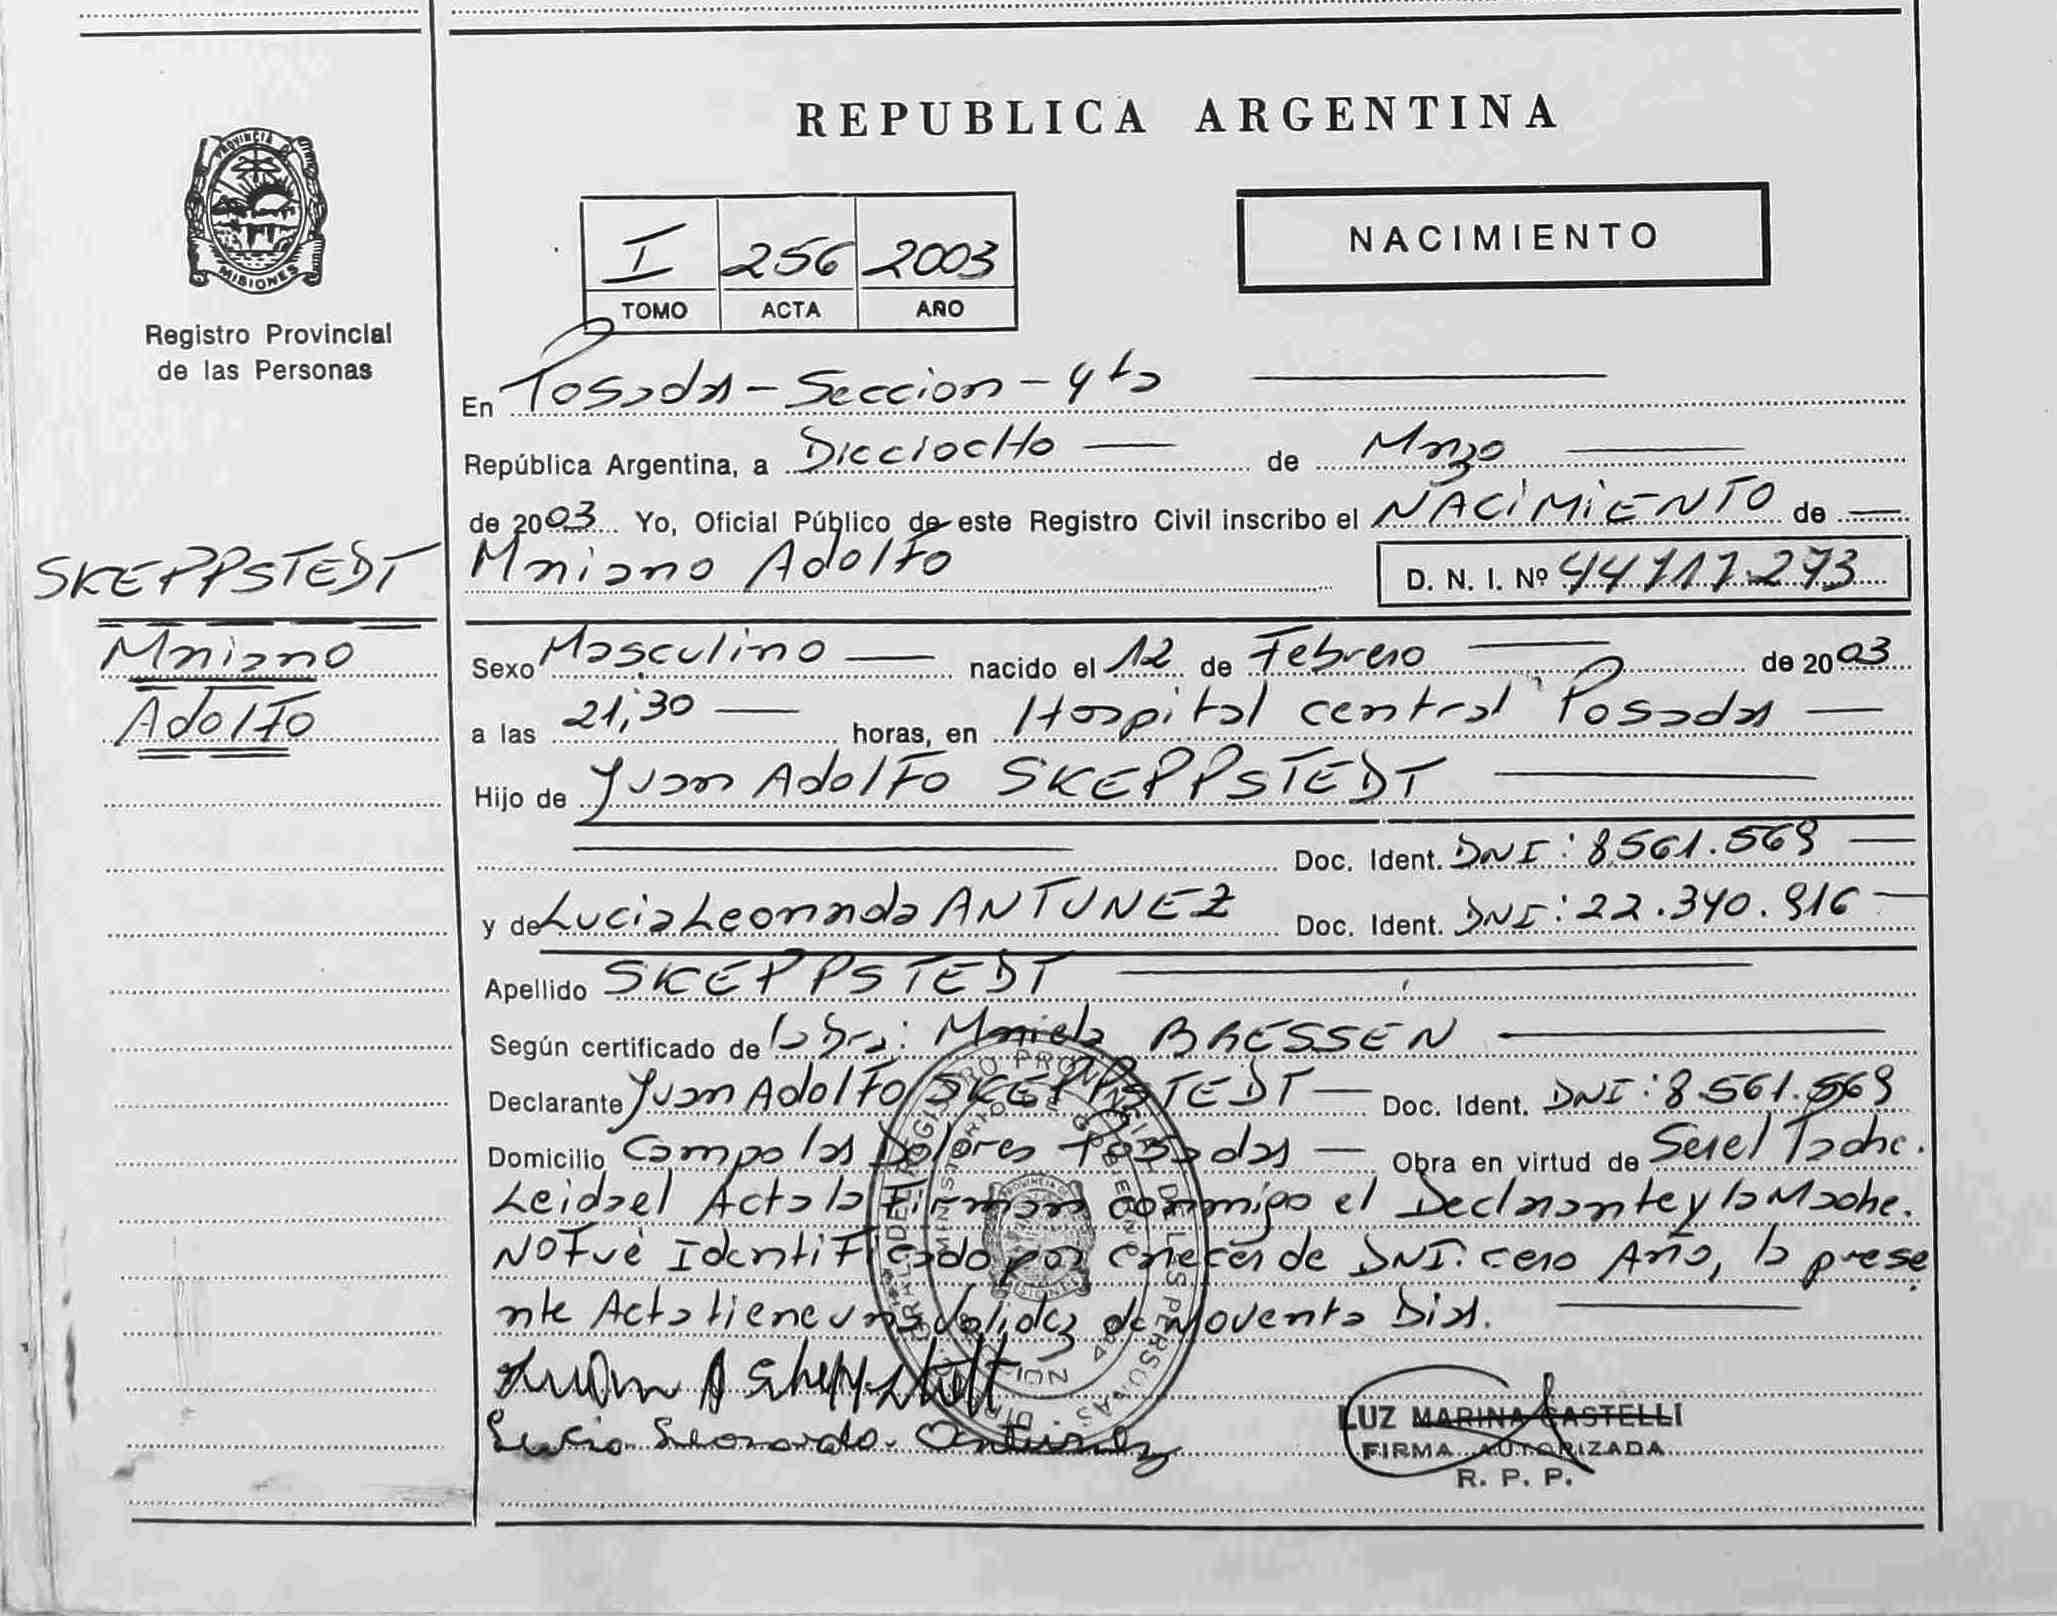 REPUBLICA ARGENTINA
PROVINCIA DE
MISIONES
Registro Provincial
de las Personas
I 256 2003
TOMO ACTA AÑO
NACIMIENTO
En Posadas - Seccion - 4ta
República Argentina, a Dieciocho de Marzo
de 2003 Yo, Oficial Público de este Registro Civil inscribo el NACIMIENTO de
SKEPPSTEDT
Mariano
Adolfo
Mariano Adolfo D. N. I. Nº 44.717.273
Sexo Masculino nacido el 12 de Febrero de 2003
a las 21,30 horas, en Hospital central Posadas
Hijo de Juan Adolfo SKEPPSTEDT
Doc. Ident. DNI: 8.561.569
y de Lucia Leonarda ANTUNEZ Doc. Ident. DNI: 22.340.916
Apellido SKEPPSTEDT
Según certificado de la Dra: Mariela BRESSEN
Declarante Juan Adolfo SKEPPSTEDT Doc. Ident. DNI: 8.561.569
Domicilio Campo las Dolores Posadas Obra en virtud de Ser el Padre.
Leida el Acta la Firman conmigo el Declarante y la Madre.
NO Fué Identificado por carecer de DNI: cero Año, la prese
nte Acta tiene una validez de Noventa Dias.
Juan A Skeppstedt
Lucia Leonarda Antunez
LUZ MARINA CASTELLI
FIRMA AUTORIZADA
R. P. P.